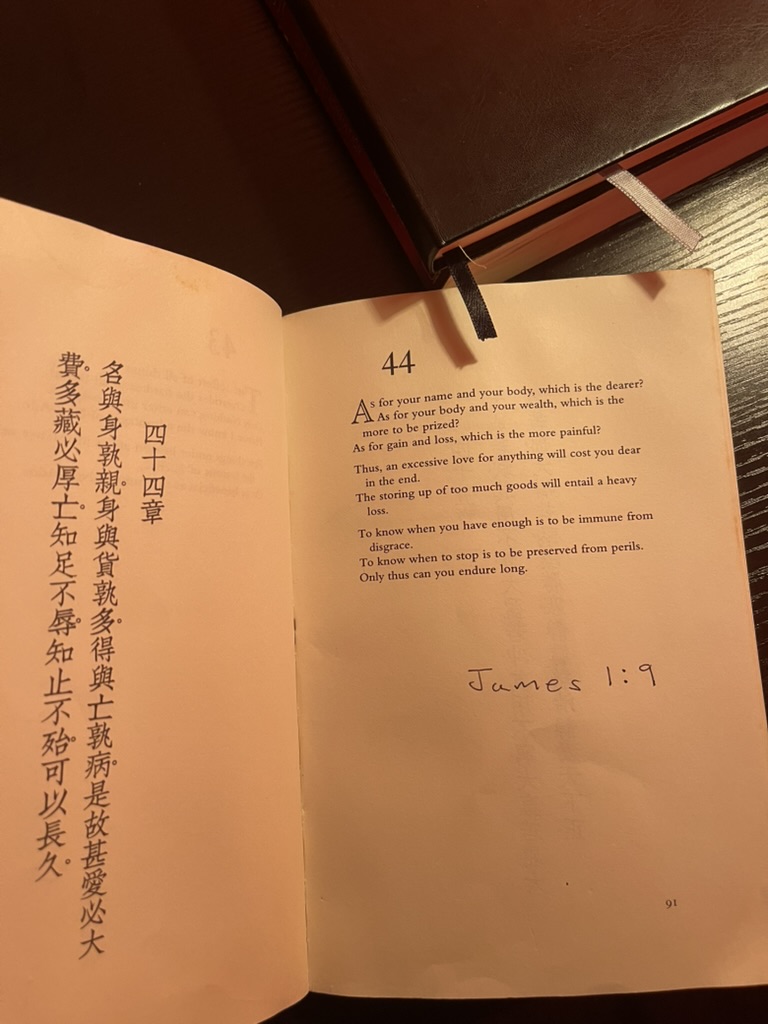 四十四章
名與身孰親。身與貨孰多。得與亡孰病。是故甚愛必大
費。多藏必厚亡。知足不辱。知止不殆。可以長久。
44
As for your name and your body, which is the dearer?
As for your body and your wealth, which is the
more to be prized?
As for gain and loss, which is the more painful?
Thus, an excessive love for anything will cost you dear
in the end.
The storing up of too much goods will entail a heavy
loss.
To know when you have enough is to be immune from
disgrace.
To know when to stop is to be preserved from perils.
Only thus can you endure long.
James 1:9
91